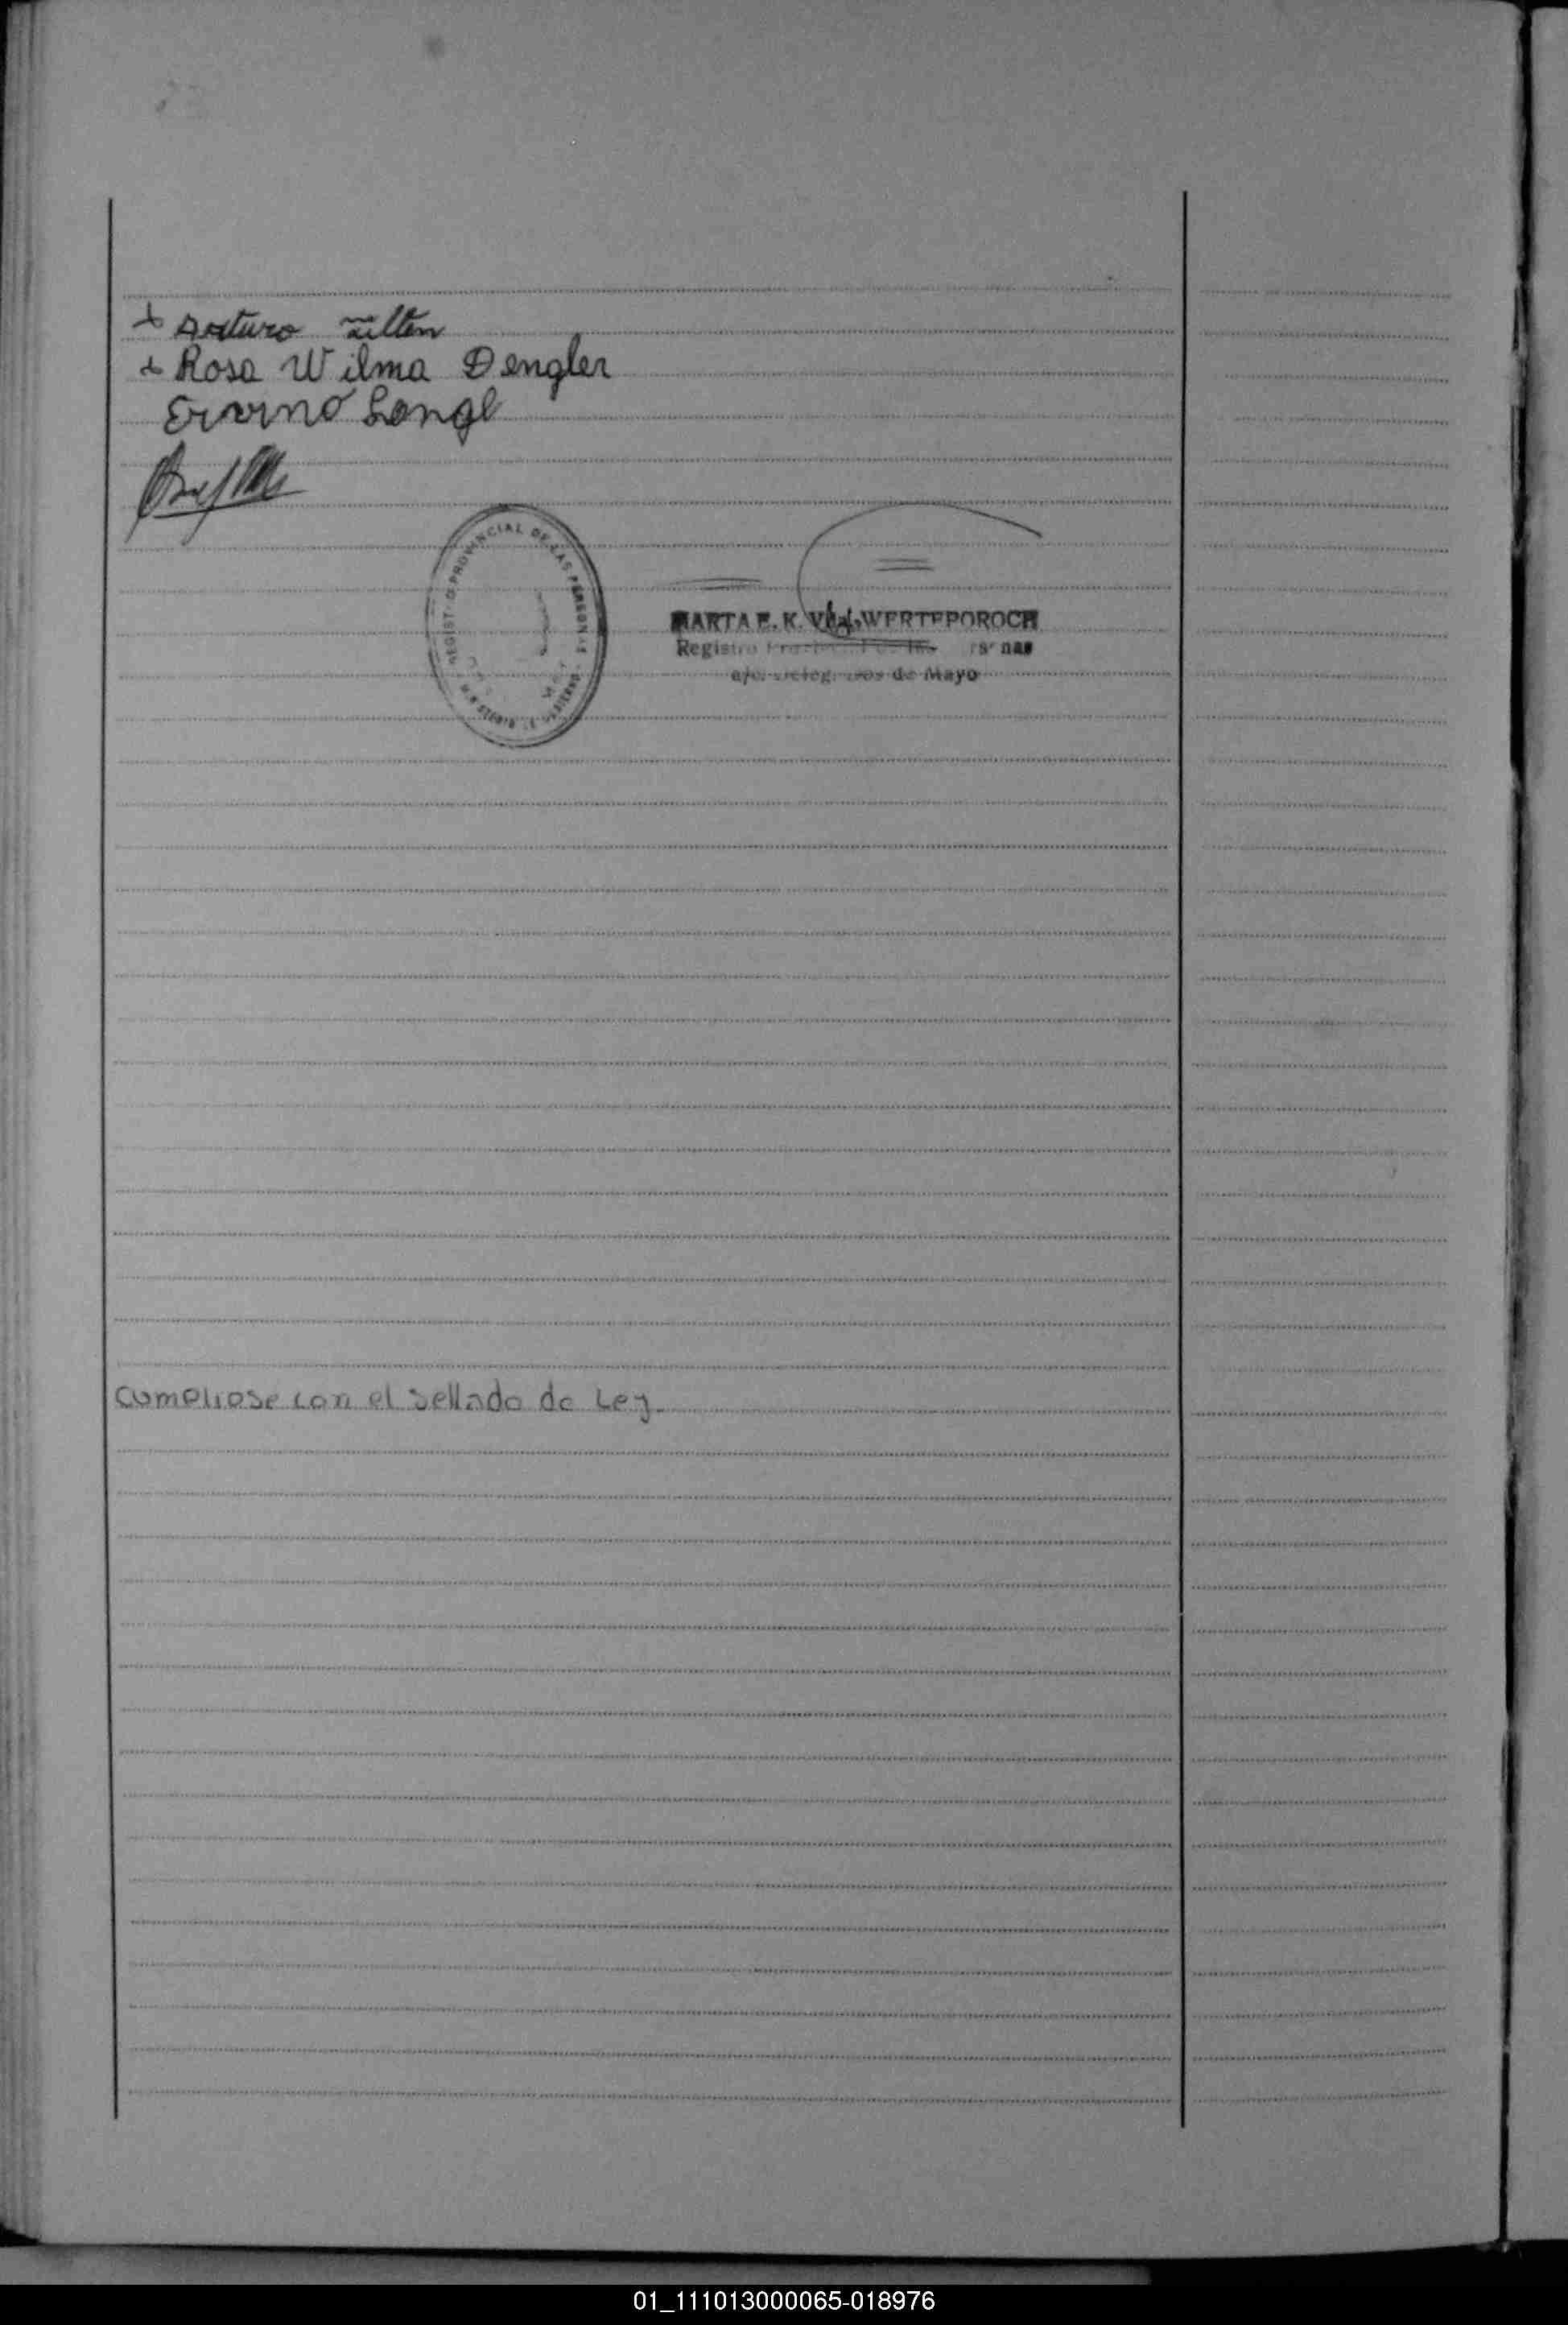 + Arturo Zilten
+ Rosa Wilma Dengler
Ervino Lengl
REGISTRO PROVINCIAL DE LAS PERSONAS
MARTA E. K. V WERTEPOROCH
Registro
de Mayo
Cumpliose con el sellado de Ley.
01_111013000065-018976